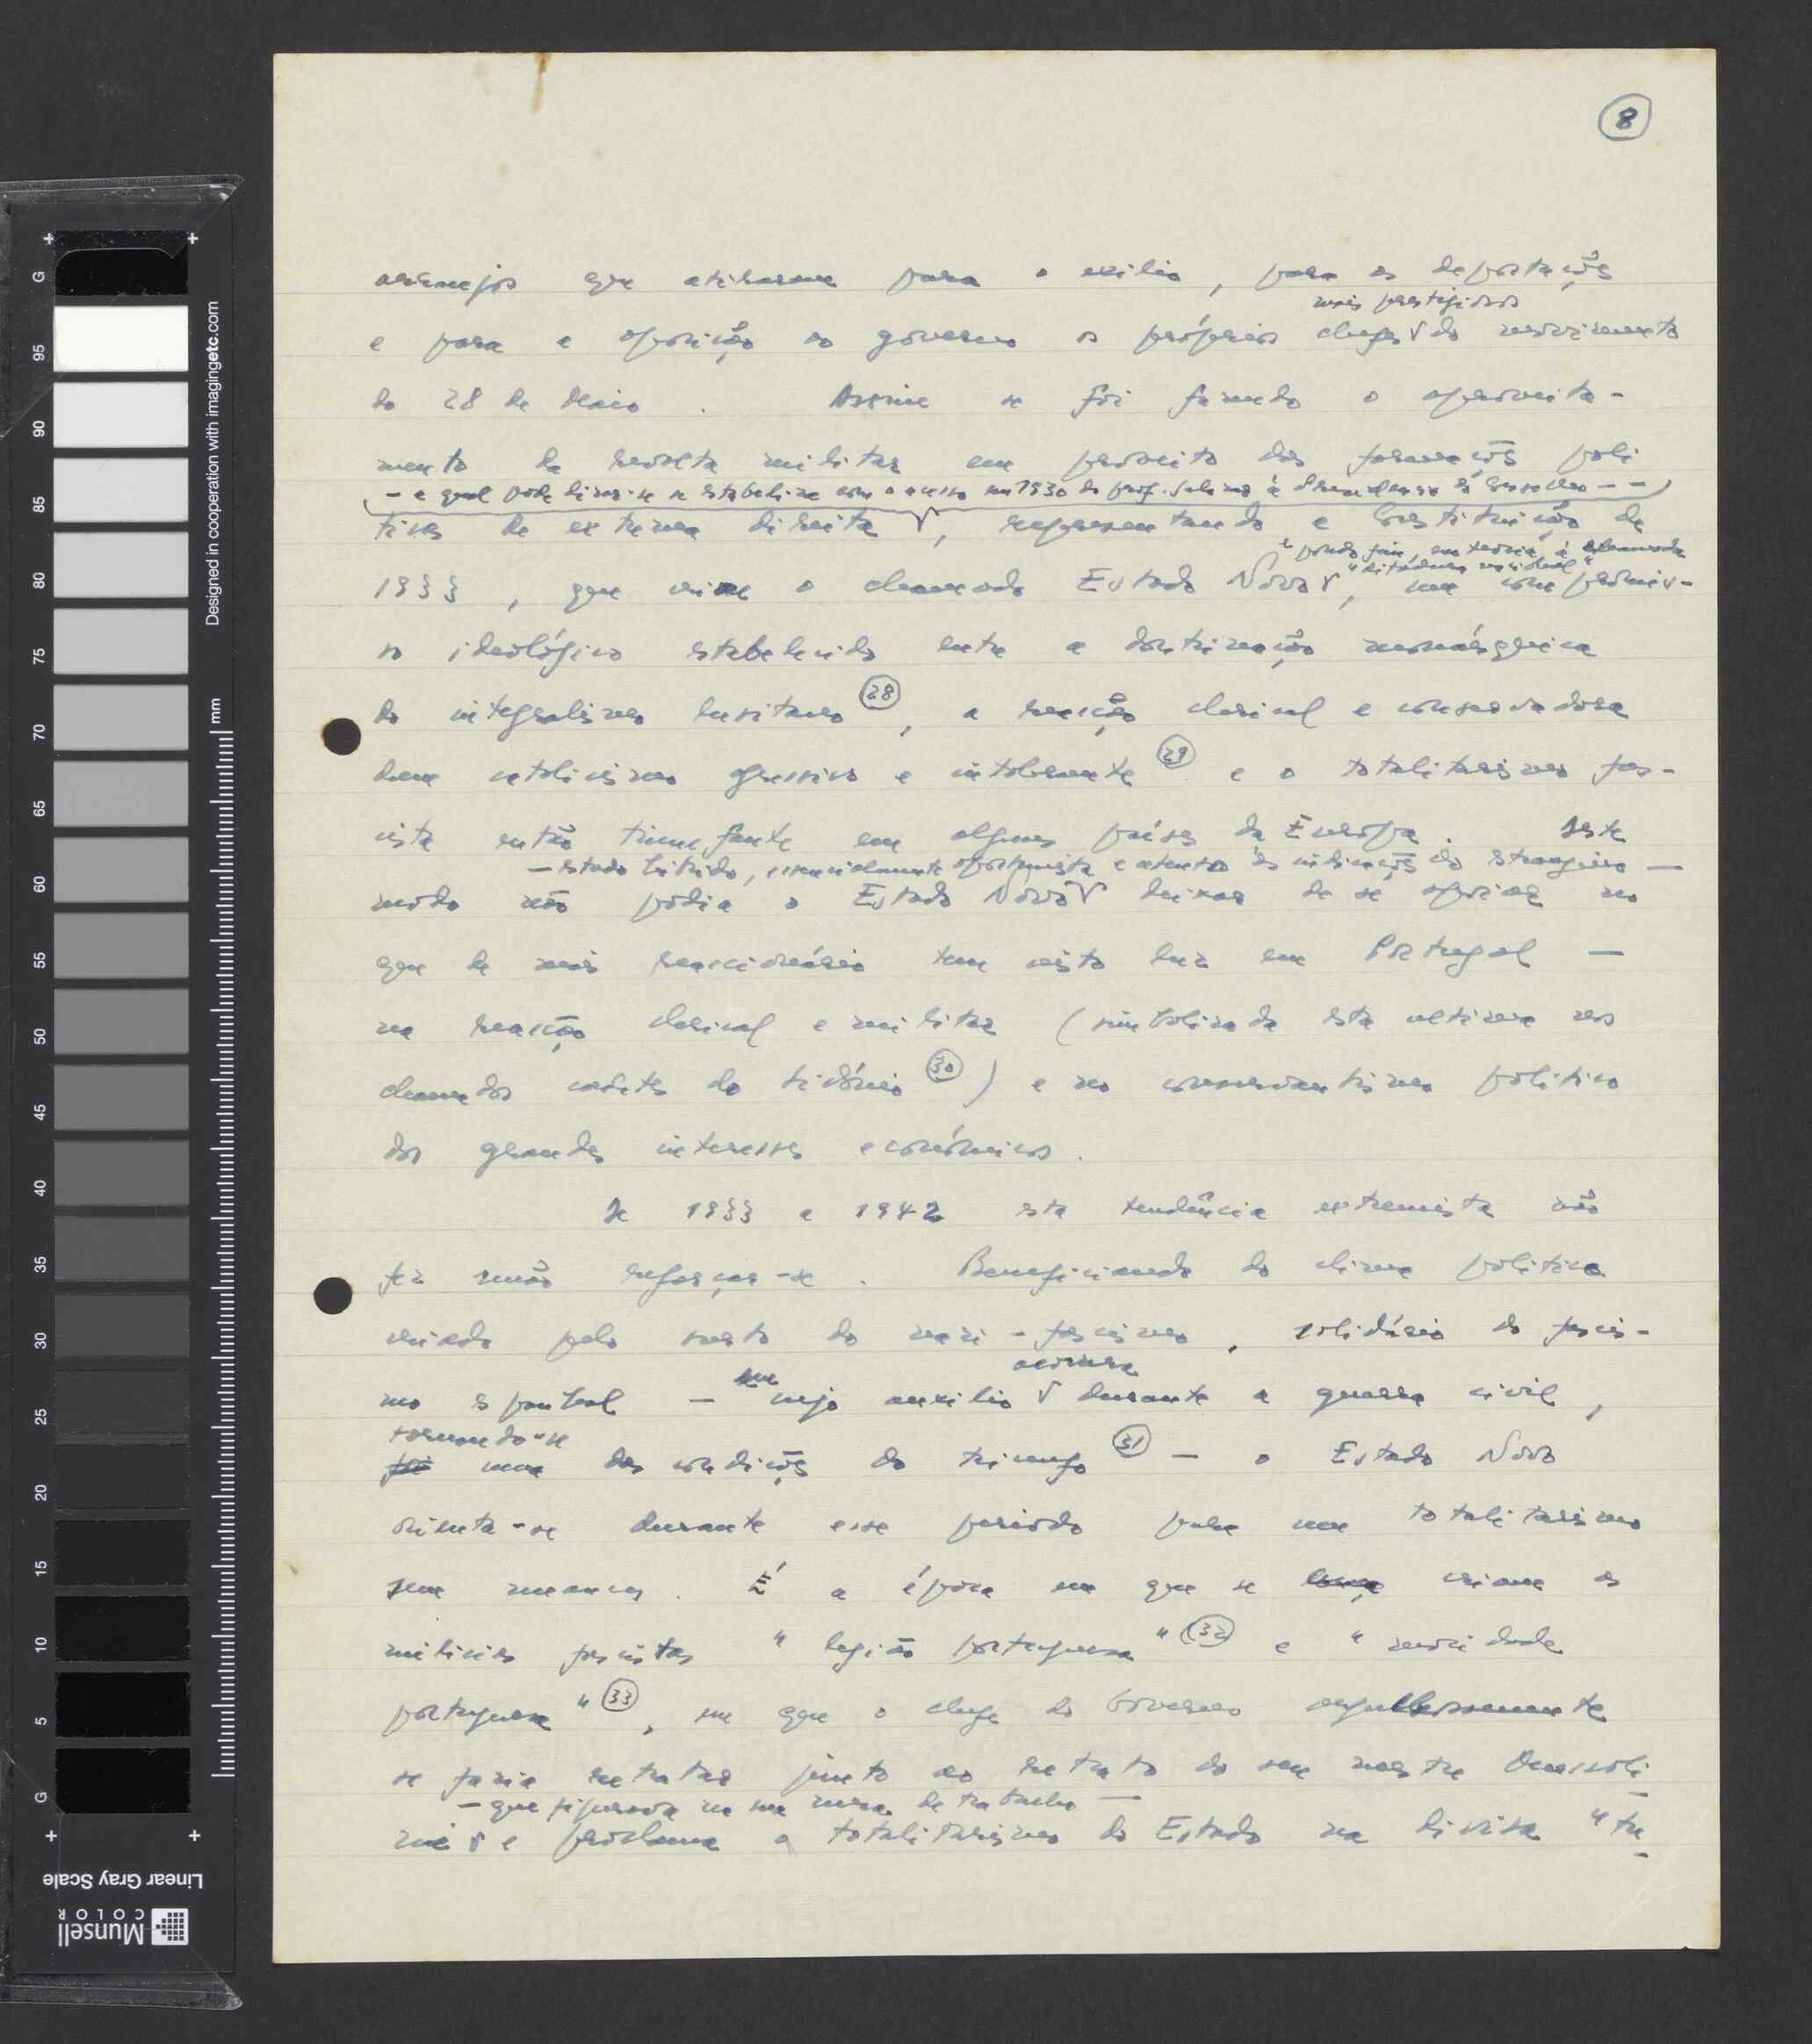 8
arranjos que atiraram para o exílio, para as deportações
mais prestigiosos
e para a oposição ao governo os próprios chefes do movimento
do 28 de Maio. Assim se foi fazendo o aproveita-
mento da revolta militar em proveito das formações polí
- a qual pode dizer-se se estabelece com o acesso em 1930 do prof. Salazar à do Governo - -
ticas de extrema direita, representando a Constituição de
e pondo fim, em teoria, à chamada
"ditadura nacional"
1933, que cria o chamado Estado Novo, um compromis-
so ideológico estabelecido entre a doutrinação monárquica
do integralismo lusitano (28), a reacção clerical e conservadora
dum catolicismo agressivo e intolerante (29) e o totalitarismo fas-
cista então triunfante em alguns países da Europa. Deste
- estado híbrido, essencialmente oportunista e atento às indicações do estrangeiro -
modo não podia o Estado Novo deixar de se apoiar no
que de mais reaccionário tem visto luz em Portugal -
na reacção clerical e militar (simbolizada esta ultima nos
chamados cadetes do Sidónio (30)) e no conservantismo politico
dos grandes interesses económicos.
De 1933 a 1942 esta tendência extremista não
fez senão reforçar-se. Beneficiando do clima politico
criado pelo surto do nazi-fascismo, solidário do fascis-
mo espanhol - cujo auxilio durante a guerra civil,
tornando-se
foi uma das condições do triunfo (31) - o Estado Novo
orienta-se durante esse periodo para um totalitarismo
sem mascara. É a época em que se criam as
milicias fascistas "legião portuguesa" (32) e "mocidade
portuguesa" (33), em que o chefe do Governo orgulhosamente
se fazia retratar junto ao retrato do seu mestre Mussoli
- que figurava na sua mesa de trabalho -
ni e proclama o totalitarismo do Estado na divisa "tu
Designed in cooperation with imagingetc.com
mm
G
95
90
85
80
75
70
65
60
55
50
45
40
35
30
25
20
15
10
5
G
Linear Gray Scale
Munsell
COLOR